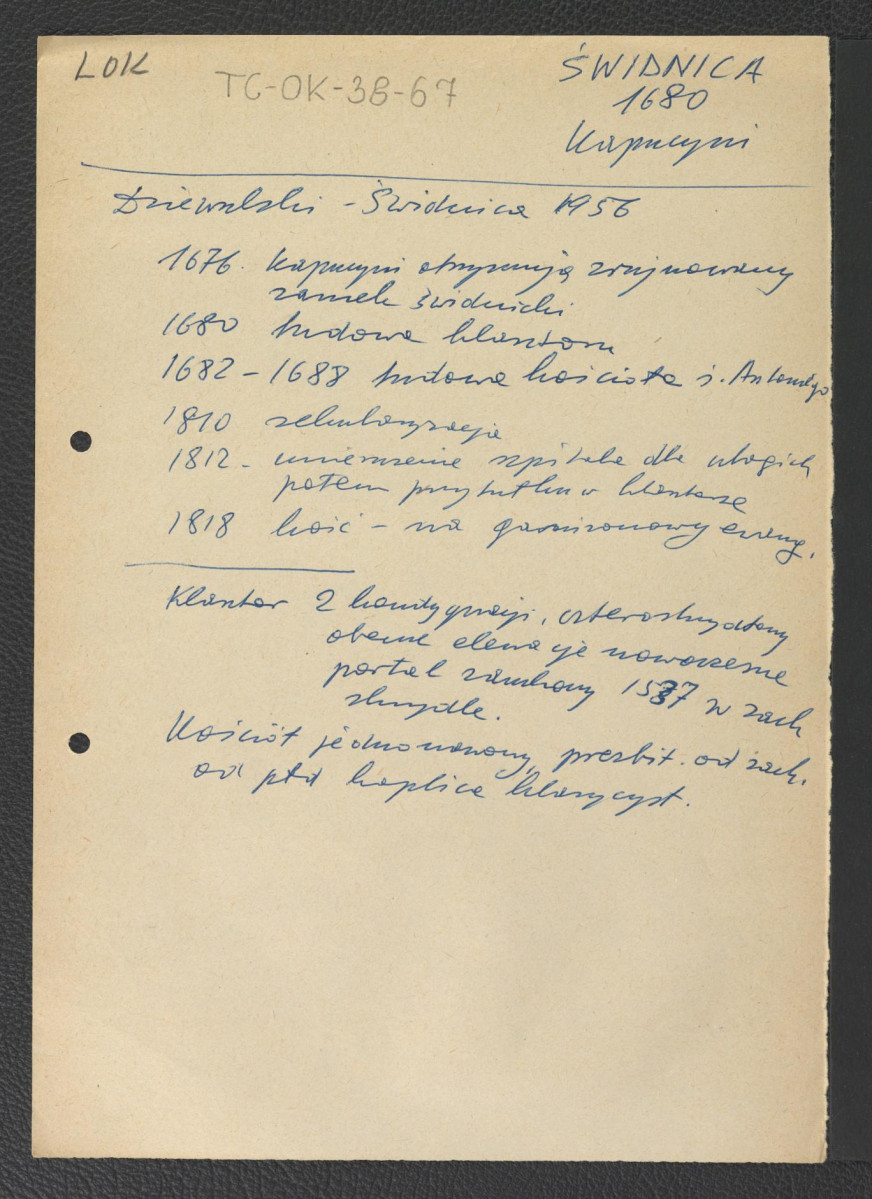 LOK
TC-OK-3B-67
ŚWIDNICA
1680
Kapucyni
Dziewulski - Świdnica 1956
1676. Kapucyni otrzymują zrujnowany
zamek świdnicki
1680 budowa klasztoru
1682 - 1688 budowa kościoła ś. Antoniego
1810 sekularyzacja
1812 - umieszczenie szpitala dla ubogich
potem przytułku w klasztorze
1818 kość - na garnizonowy ewang.
Klasztor 2 kondygnacji, czteroskrzydłowy
obecne elewacje nowoczesne
portal zamkowy 1537 w zach
skrzydle.
Kościół jednonawowy, prezbit. od zach.
od płd kaplica klasycyst.